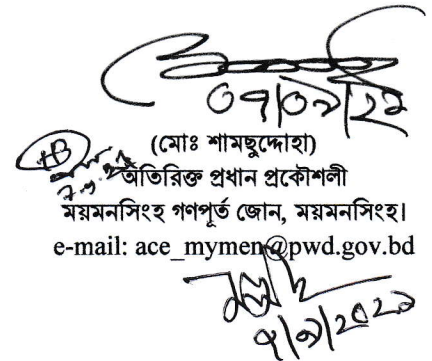 ০৭/০৯/২২
(মোঃ শামছুদ্দোহা)
অতিরিক্ত প্রধান প্রকৌশলী
ময়মনসিংহ গণপূর্ত জোন, ময়মনসিংহ।
e-mail: ace_mymen@pwd.gov.bd